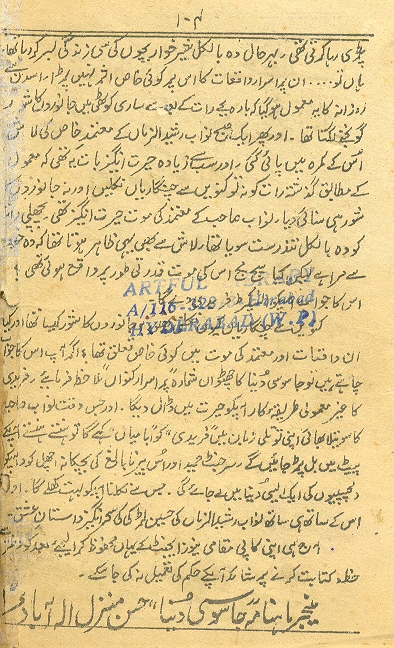 ۱۰۴
پڑی رہا کرتی تھی۔ بہر حال وہ بالکل شیر خوار بچوں کی سی زندگی بسر کر رہا تھا۔
ہاں تو.... ان پر اسرار واقعات کا اس پر کوئی خاص اثر نہیں پڑا۔
روزانہ کا یہ معمول ہو گیا کہ بارہ بجے رات کے بعد سے ساری کوٹھی میں جانوروں کا شور
گونجنے لگتا تھا۔ اور پھر ایک صبح نواب رشید الزماں کے معتمد خاص کی لاش
اُسی کے کمرہ میں پائی گئی، اور سب سے زیادہ حیرت انگیز بات یہ تھی کہ معمول
کے مطابق گذشتہ رات کو نہ تو کنویں سے چنگاریاں نکلیں اور نہ جانوروں کا
شور ہی سنائی دیا۔ نواب صاحب کے معتمد کی موت حیرت انگیز تھی۔ پچھلی رات
کو وہ بالکل تندرست سویا تھا۔ لاش سے بھی یہی ظاہر ہوتا تھا کہ وہ
سے مرا ہے لیکن کیا سچ مچ اس کی موت قدرتی طور پر واقع ہوئی تھی ؟
اس کا جواب
ARTFUL LIBRARY
A/116-328
HYDERABAD (W.P)
جانوروں کا شور کیسا تھا اور کیا
ان واقعات اور معتمد کی موت میں کوئی خاص تعلق تھا ؟ اگر آپ اس کا جواب
چاہتے ہیں تو جاسوسی دُنیا کا چھٹواں شمارہ ”پر اسرار کنواں“ ملاحظہ فرمایئے۔ فریدی
کا غیر معمولی طریقۂ کار آپ کو حیرت میں ڈال دیگا۔ اور جس وقت نواب صاحب
کا سوتیلا بھائی اپنی توتلی زبان میں ”فریدی“ کو ”ابا میاں“ کہے گا تو ہنستے ہنستے آپ کے
پیٹ میں بل پڑ جائیں گے۔ سرجنٹ حمید اور اُس پیر نابالغ کی بچکانہ اچھل کود آپکو
دلچسپیوں کی ایک ایسی دُنیا میں لے جائے گی۔ جس سے نکلنا آپ کو بہت کھلے گا۔
اس کے ساتھ ہی ساتھ نواب رشید الزماں کی حسین لڑکی کی سحر انگیز داستانِ عشق
آج ہی اپنی کاپی مقامی نیوز ایجنٹ کے یہاں محفوظ کرا لیجئے۔ بعد کو
خط و کتابت کرنے پر شائد آپکے حکم کی تعمیل نہ کی جا سکے۔
منیجر ماہنامہ جاسوسی دُنیا ”حسن منزل الہ آباد